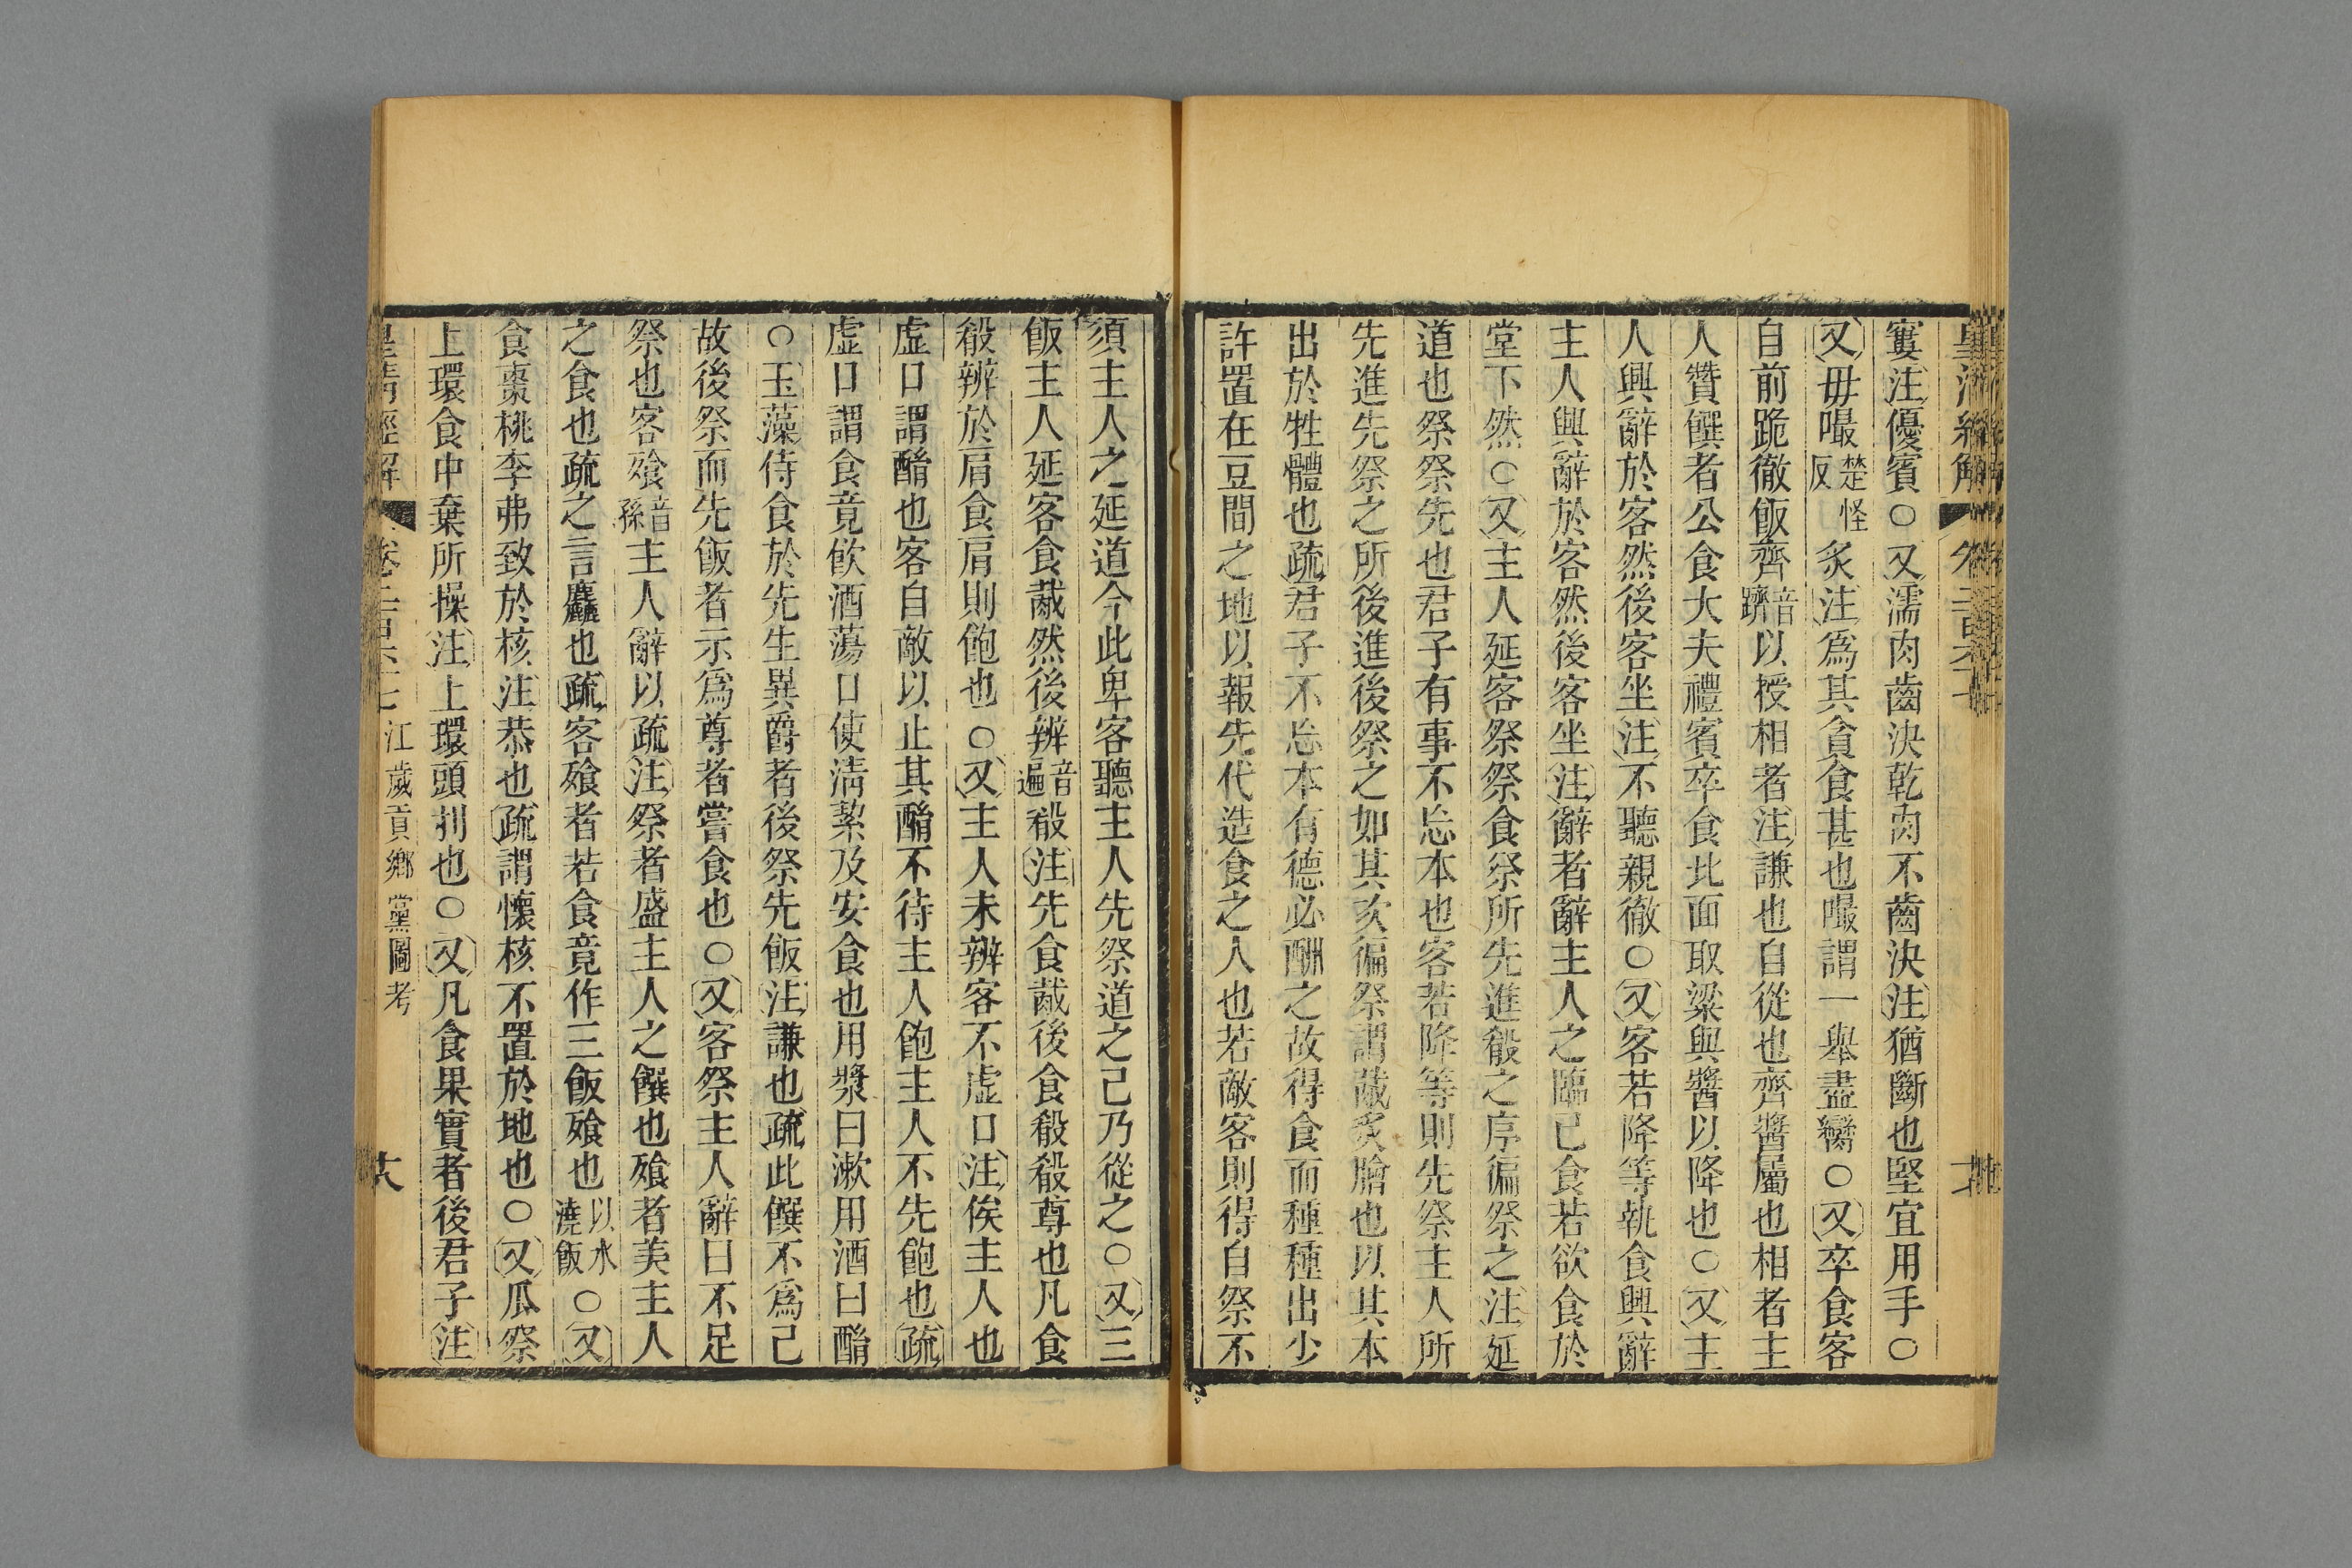 皇清經解
窶注優賓○又濡肉齒決乾肉不齒決注猶斷也堅宜用手○
又毋嘬楚怪反炙注爲其貪食甚也嘬謂一舉盡臠○又卒食客
自前跪徹飯齊音躋以授相者注謙也自從也齊醬屬也相者主
人贊饌者公食大夫禮賓卒食北面取粱與醬以降也○又主
人興辭於客然後客坐注不聽親徹○又客若降等執食興辭
主人興辭於客然後客坐注辭者辭主人之臨己食若欲食於
堂下然○又主人延客祭祭食祭所先進殽之序徧祭之注延
道也祭祭先也君子有事不忘本也客若降等則先祭主人所
先進先祭之所後進後祭之如其次徧祭謂胾炙膾也以其本
出於牲體也疏君子不忘本有德必酬之故得食而種種出少
許置在豆間之地以報先代造食之人也若敵客則得自祭不
須主人之延道今此卑客聽主人先祭道之己乃從之○又三
飯主人延客食胾然後辨音遍殽注先食胾後食殽殽尊也凡食
殽辨於肩食肩則飽也○又主人未辨客不虛口注俟主人也
虛口謂酳也客自敵以上其酳不待主人飽主人不先飽也疏
虛口謂食竟飲酒蕩口使淸絜及安食也用漿曰漱用酒曰酳
○玉藻侍食於先生異爵者後祭先飯注謙也疏此饌不爲己
故後祭而先飯者示爲尊者嘗食也○又客祭主人辭曰不足
祭也客飱音孫主人辭以疏注祭者盛主人之饌也飱者美主人
之食也疏之言麤也疏客飱者若食竟作三飯飱也以水澆飯○又
食棗桃李弗致於核注恭也疏謂懷核不置於地也○又瓜祭
上環食中棄所操注上環頭刌也○又凡食果實者後君子注
皇清經解 卷二百六十七 江歲貢鄉黨圖考 六